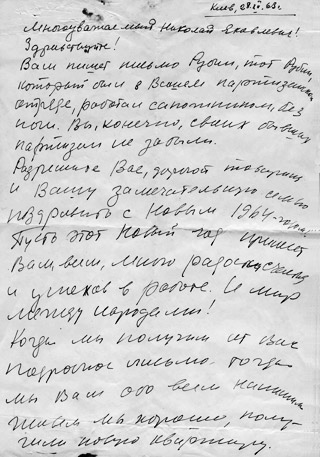 Киев, 28.XII.63г.
Многоуважаемый Николай Яковлевич!
Здравствуйте!
Вам пишет письмо Рубин, тот Рубин,
который был в Вашем партизанском
отряде, работал сапожником, без
ноги. Вы, конечно, своих бывших
партизан не забыли.
Разрешите Вас, дорогой товарищ
и Вашу замечательную семью
поздравить с Новым 1964 годом.
Пусть этот новый год принесет
Вам, всем, много радости, счастья
и успехов в работе. И мир
между народами!
Когда мы получим от Вас
подробное письмо тогда
мы Вам обо всем напишем
Живем мы хорошо, полу-
чили новую квартиру.